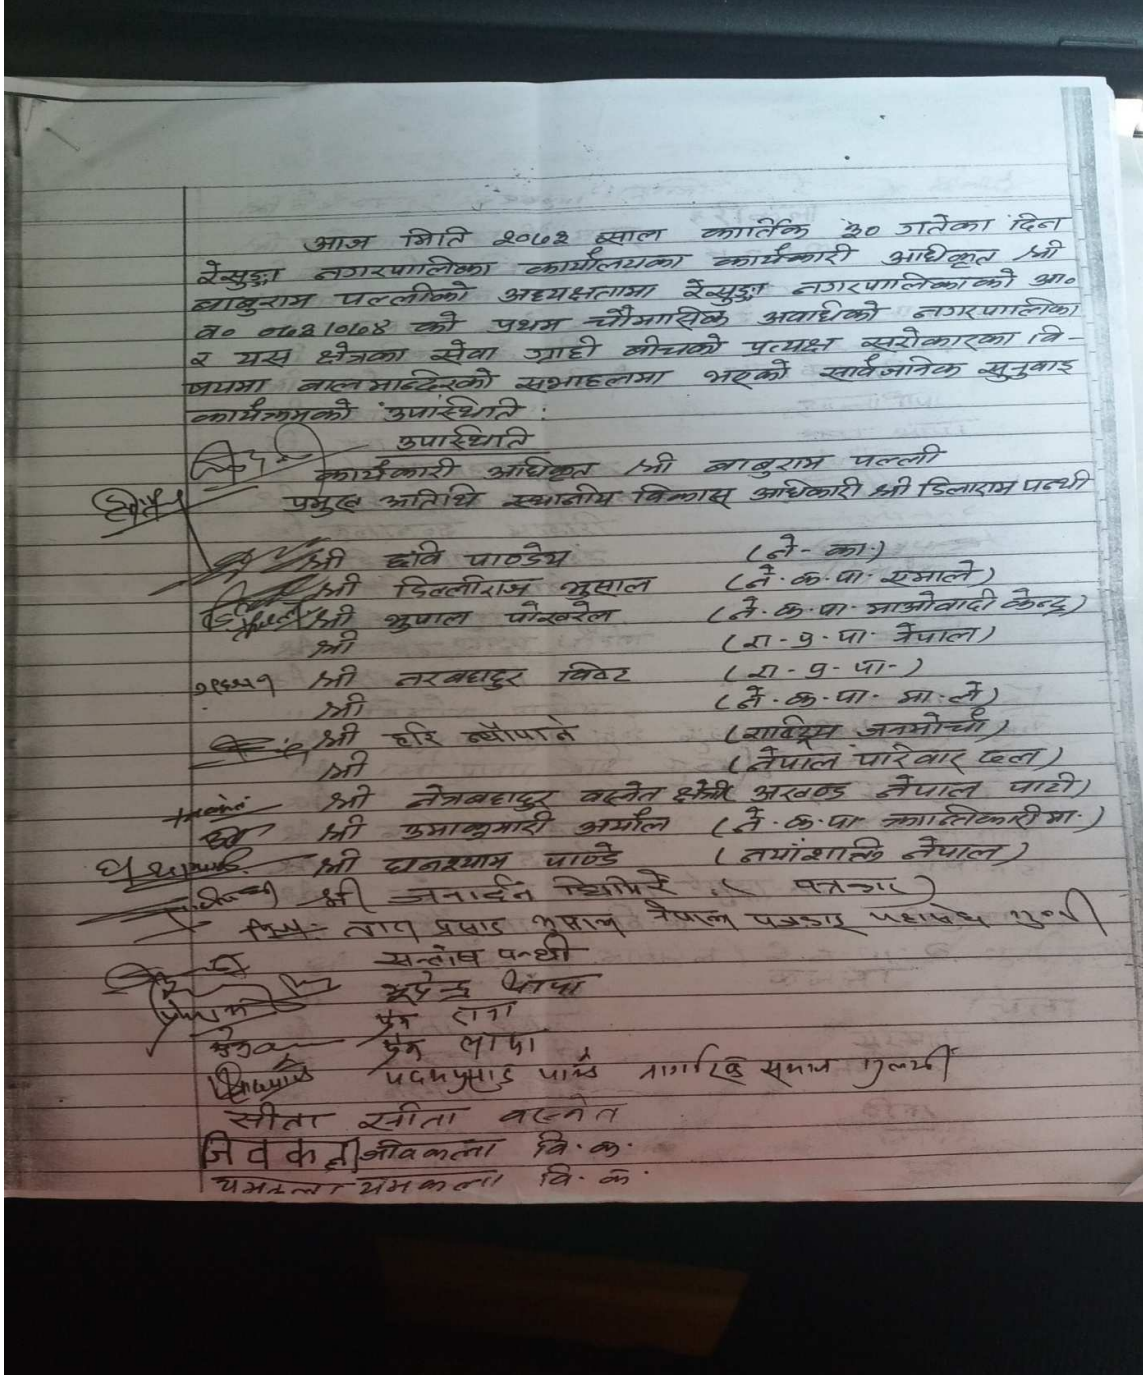 आज मिति २०७३ साल कार्तिक ३० गतेका दिन
रेसुङ्गा नगरपालिका कार्यालयका कार्यकारी अधिकृत श्री
बाबुराम पल्लीको अध्यक्षतामा रेसुङ्गा नगरपालिकाको आ०
व० ०७३/०७४ को प्रथम चौमासिक अवधिको नगरपालिका
र यस क्षेत्रका सेवा ग्राही बीचको प्रत्यक्ष सरोकारका वि-
षयमा बाल मन्दिरको सभाहलमा भएको सार्वजनिक सुनुवाइ
कार्यक्रमको उपस्थिति :
उपस्थिति
कार्यकारी अधिकृत श्री बाबुराम पल्ली
प्रमुख अतिथि स्थानीय विकास अधिकारी श्री डिलाराम पन्थी
श्री छवि पाण्डेय (ने- का.)
श्री डिल्लीराज भुसाल (ने. क. पा. एमाले)
श्री भुपाल पोखरेल (ने. क. पा. माओवादी केन्द्र)
श्री (रा - प्र - पा. नेपाल)
श्री नरबहादुर विष्ट (रा - प्र - पा -)
श्री (ने. क. पा - मा. ले)
श्री हरि न्यौपाने (राष्ट्रिय जनमोर्चा)
श्री (नेपाल परिवार दल)
श्री नेत्रबहादुर वस्नेत क्षेत्री अखण्ड नेपाल पार्टी)
श्री उमाकुमारी अर्याल (ने. क. पा क्रान्तिकारी मा.)
घनश्याम श्री घनश्याम पाण्डे (नयाँशक्ति नेपाल)
श्री जनार्दन घिमिरे (पत्रकार)
प्रसाद भुसाल नेपाल पत्रकार महासंघ गुल्मी
सन्तोष पन्थी
भूपेन्द्र थापा
प्रेम राना
प्रेम थापा
पदमप्रसाद पाण्डे नागरिक समाज गुल्मी
सीता सीता वस्नेत
जिवकला जीवकला वि. क.
यमकला यमकला वि. क.